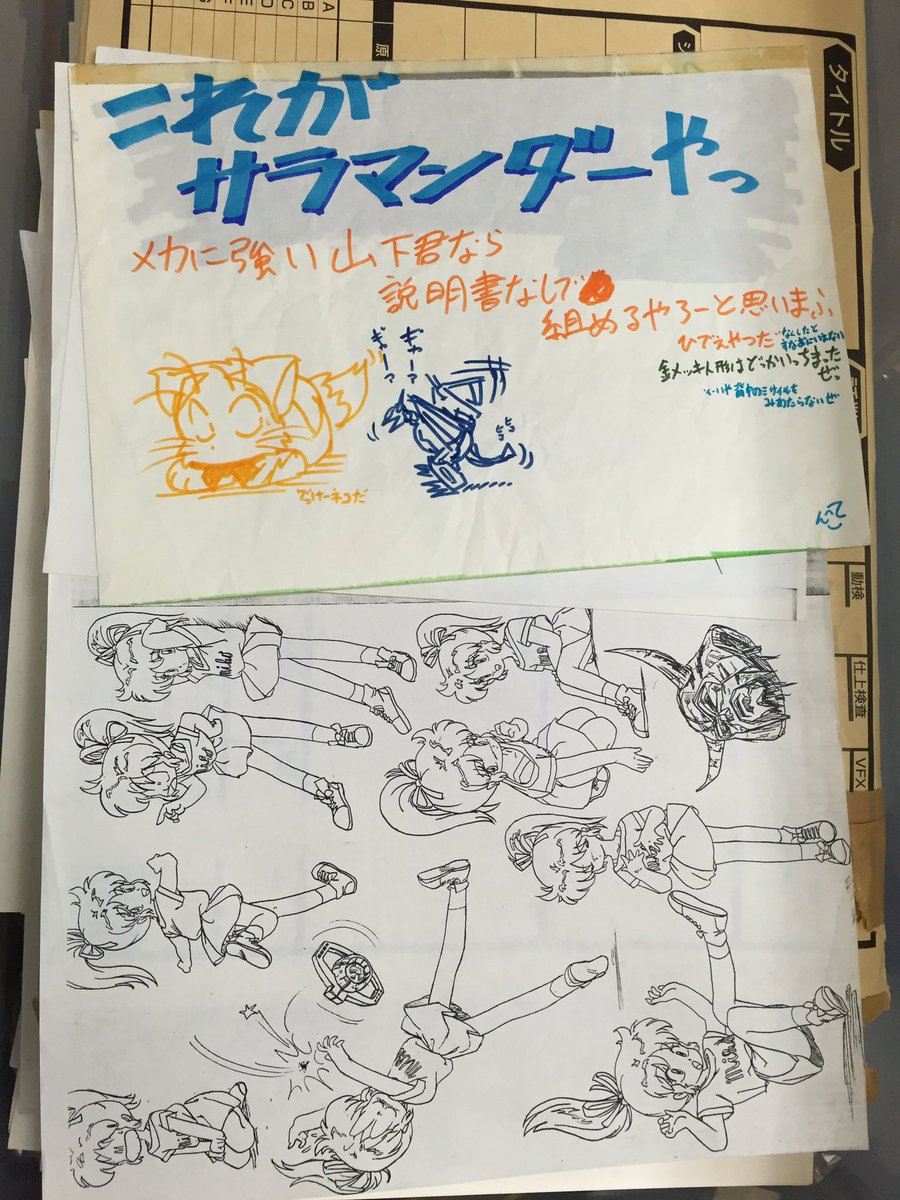 これが
サラマンダーやっ
メカに強い山下君なら
説明書なしで
組めるやろーと思いまふ
ひでぇやつだ
なんしたと
金メッキ人形はどっかいっちまった
ぜっ
背中のミサイルを
みあたらないぜ
ギャー?
ギャー?
ピコピコ
でっけーネコだ
タイトル
原
A
B
C
D
E
動検
仕上検査
VFX
miho
miho
miho